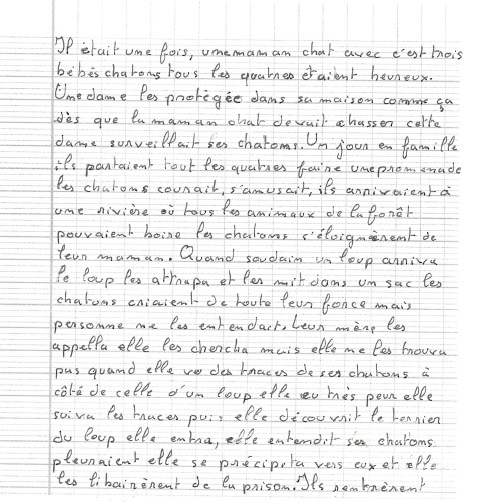 Il était une fois, une maman chat avec c'est trois
bébés chatons tous les quatres étaient heureux.
Une dame les protégée dans sa maison comme ça
dès que la maman chat devait chasser cette
dame surveillait ses chatons. Un jour en famille
ils partaient tout les quatres faire une promenade
les chatons courait, s'amusait, ils arrivaient à
une rivière où tous les animaux de la forêt
pouvaient boire les chatons s'éloignèrent de
leur maman. Quand soudain un loup arriva
le loup les attrapa et les mit dans un sac les
chatons criaient de toute leur force mais
personne ne les entendait. Leur mère les
appella elle les chercha mais elle ne les trouva
pas quand elle vo des traces de ses chatons à
côté de celle d'un loup elle eu très peur elle
suiva les traces puis elle découvrit le terrier
du loup elle entra, elle entendit ses chatons
pleuraient elle se précipita vers eux et elle
les libairèrent de la prison. Ils rentrèrent